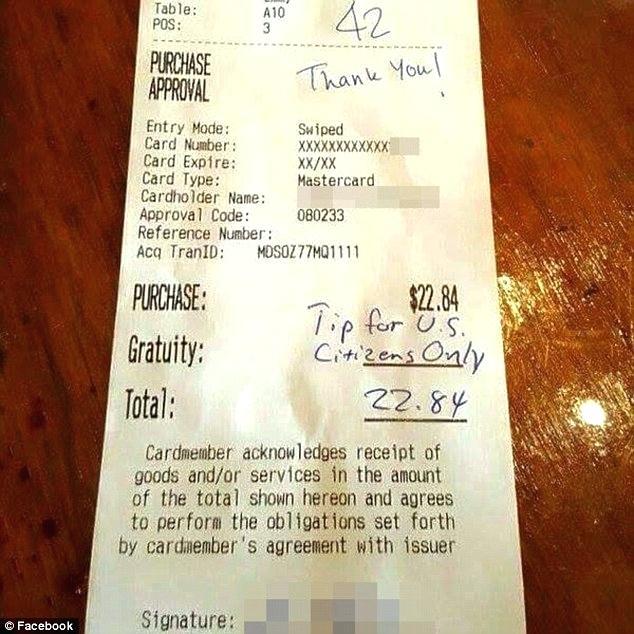 Table: A10
POS: 3
42
PURCHASE
APPROVAL
Thank You!
Entry Mode: Swiped
Card Number: XXXXXXXXXXXX
Card Expire: XX/XX
Card Type: Mastercard
Cardholder Name:
Approval Code: 080233
Reference Number:
Acq TranID: MDSOZ77MQ1111
PURCHASE: $22.84
Tip for U.S.
Gratuity: Citizens Only
Total: 22.84
Cardmember acknowledges receipt of
goods and/or services in the amount
of the total shown hereon and agrees
to perform the obligations set forth
by cardmember's agreement with issuer
Signature:
© Facebook